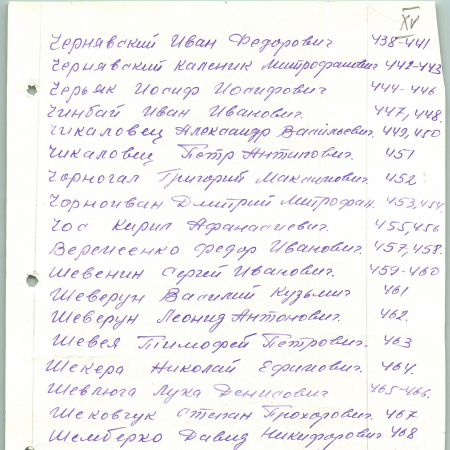 XV
Чернявский Иван Федорович 438-441
Чернявский Каленик Митрофанович 442-443
Черьяк Иосиф Иосифович 444-446
Чинбай Иван Иванович. 447, 448.
Чикаловец Александр Васильевич. 449, 450
Чикаловец Петр Антипович. 451
Чорногал Григорий Максимович. 452
Чорноиван Дмитрий Митрофан. 453, 454.
Чос Кирил Афанасиевич. 455, 456
Федор Иванович. 457, 458.
Шевенин Сергей Иванович. 459-460
Шеверун Василий Кузьмич 461
Шеверун Леонид Антонович. 462
Шевея Тимофей Петрович. 463
Шекера Николай Ефимович 464.
Шевлюга Лука Денисович 465-466.
Шековчук Степан Прохорович. 467
Шемберко Давид Никифорович 468